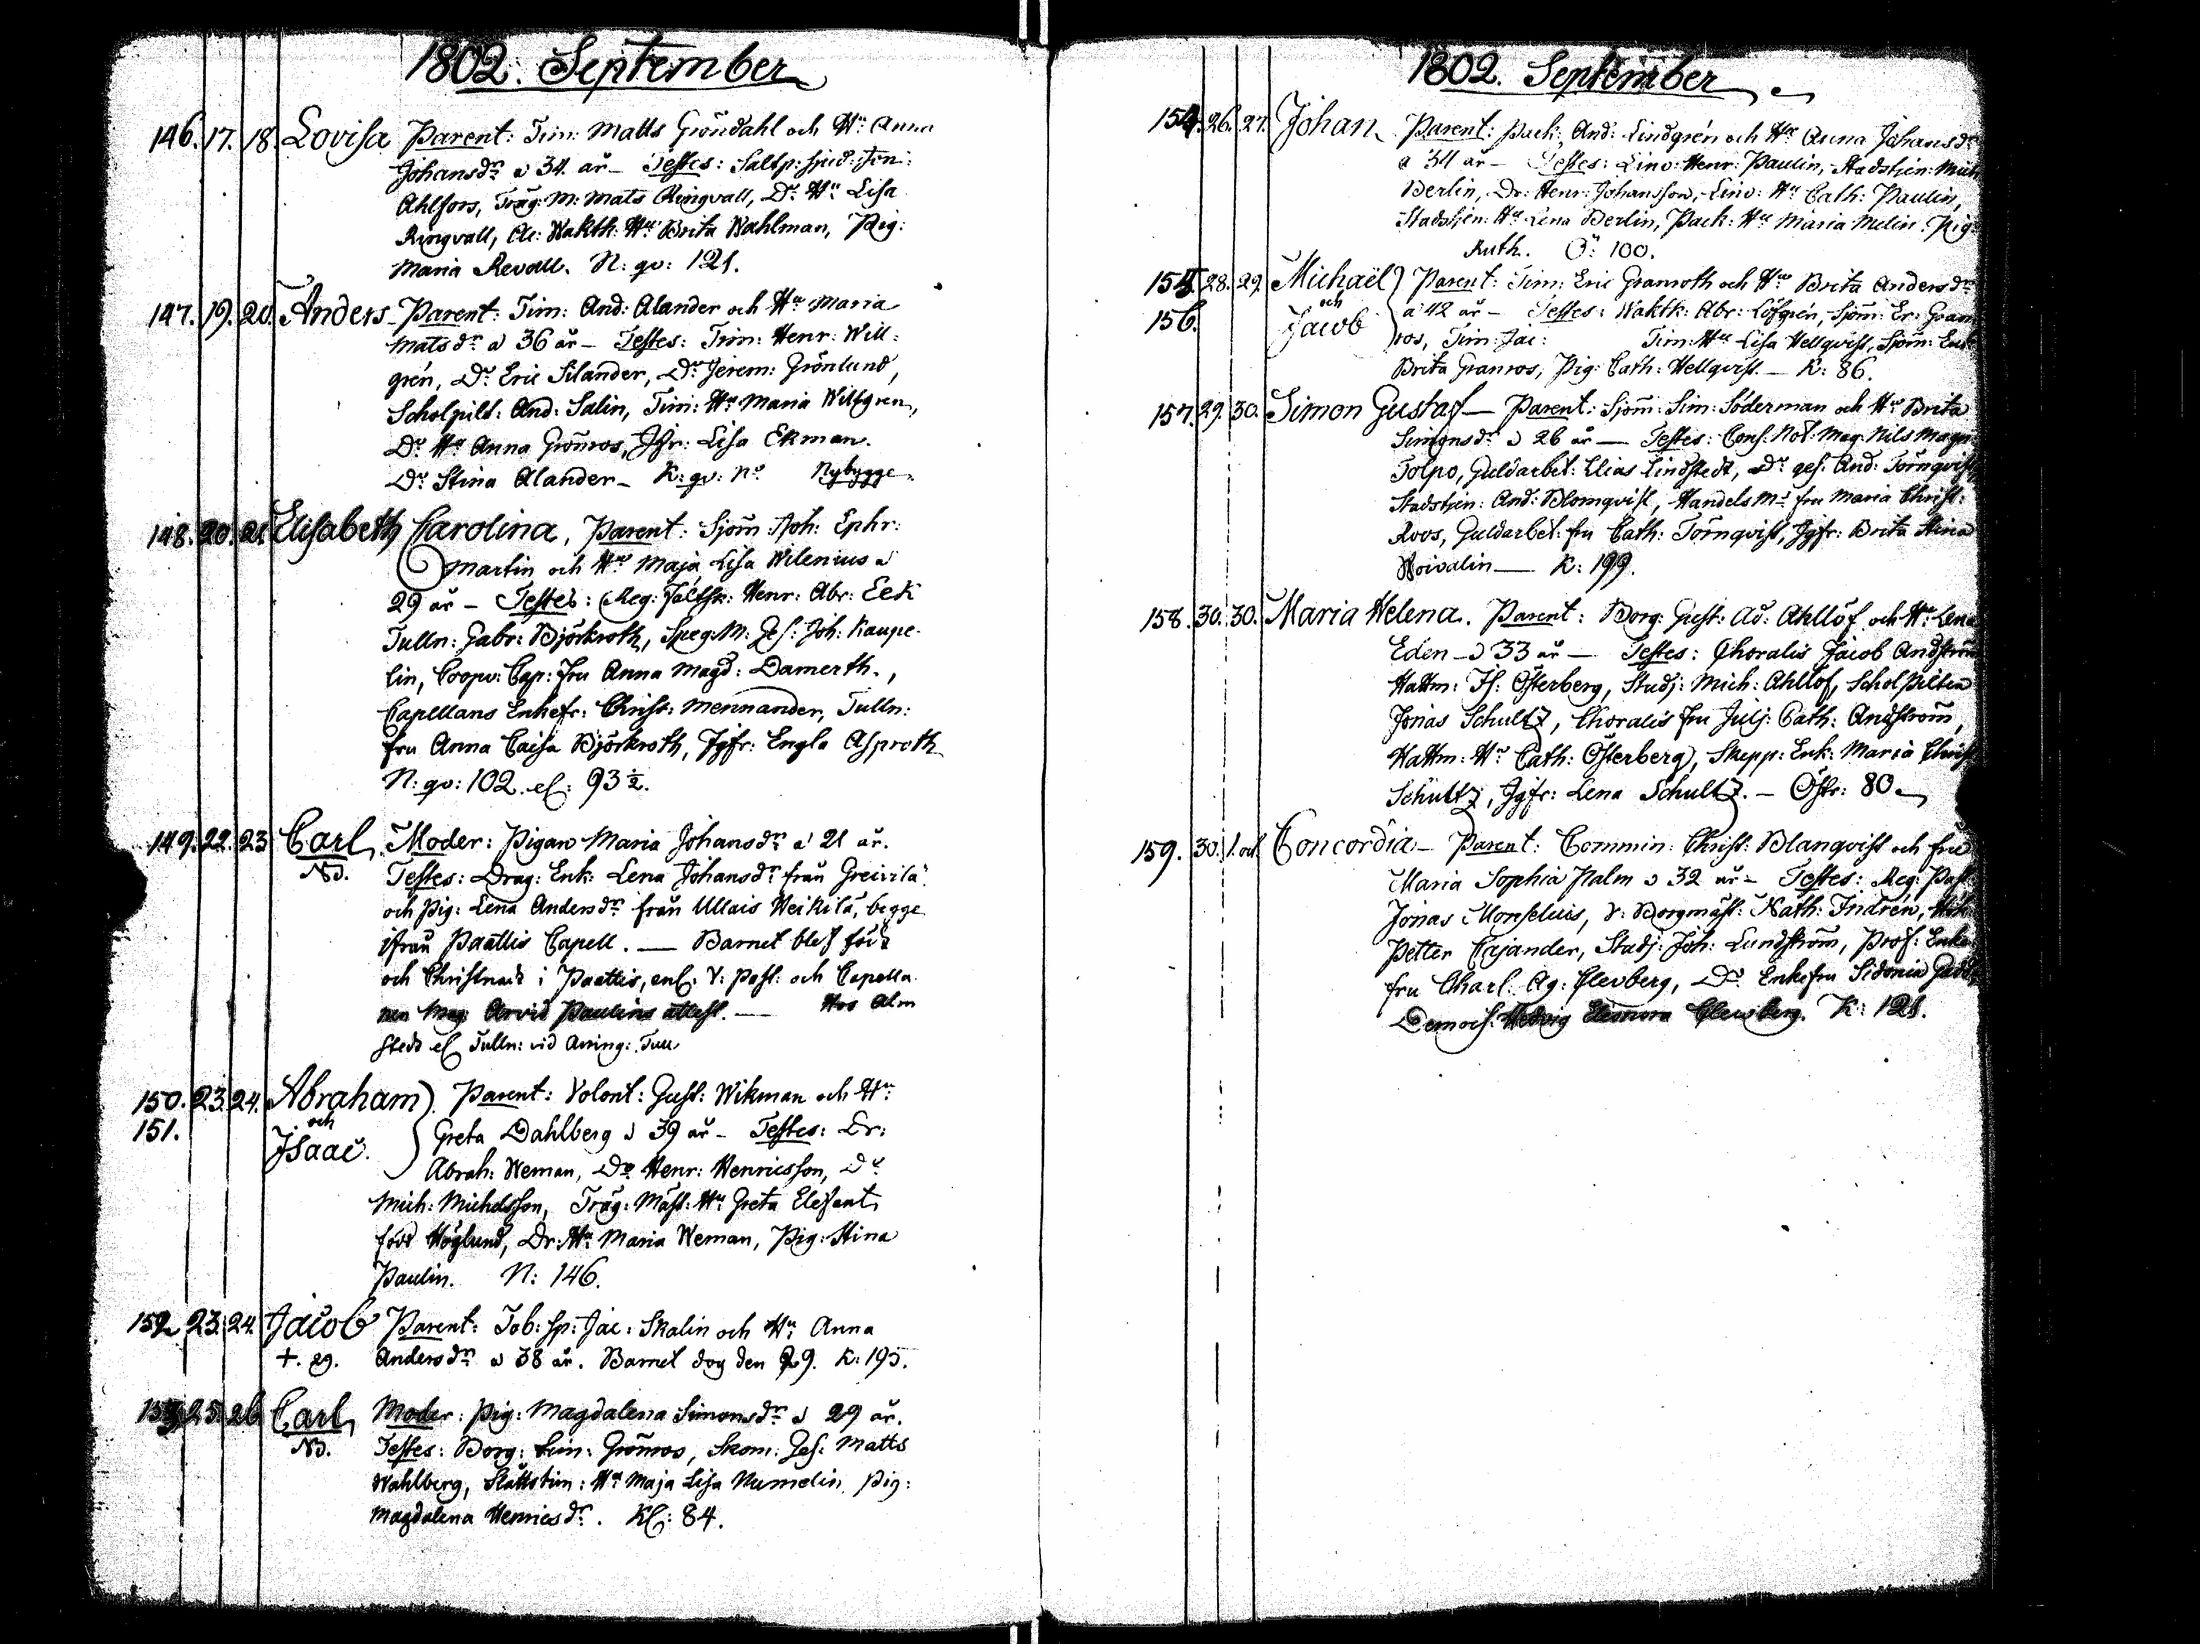 1802. September
146. 17. 18. Lovisa Parent: Tim: Matts Gröndahl och Hu: Anna
Johansdr a 34 år — Testes: Saltp: sjud: Jon:
Ahlfors, Träg: M: Mats Ringvall, Dr: Hu: Lisa
Ringvall, Ar: Wakth: Hu Brita Wahlman, Pig:
Maria Revall. N: qv: 121.
147. 19. 20. Anders Parent: Tim: And: Alander och Hu Maria
Matsdr a 36 år — Testes: Tim: Henr: Will-
grén, Do Eric Silander, Do Jerem: Grönlund,
Scholpilt: And: Salin, Tim: Hu Maria Willgren,
Do Hu Anna Grönros, Jgfr: Lisa Ekman.
Do Stina Alander — K: qv: No Nybygge.
148. 20. 21. Elisabeth Carolina, Parent: Sjöm: Joh: Ephr:
Martin och Hu Maja Lisa Wilenius a
29 år — Testes: Reg: Fältsk: Henr: Abr: Eek
Tulln: Gabr: Björkroth, Speg: M: Ges: Joh: Kaupe-
lin, Coopv: Cap: fru Anna Magd: Damerth.,
Capellans Enkefr: Christ: Mennander, Tulln:
fru Anna Caisa Björkroth, Jgfr: Engla Asproth
N: qv: 102. el: 93½.
149. 22. 23 Carl, Moder: Pigan Maria Johansdr a 21 år.
NB. Testes: Drag: Enk: Lena Johansdr från Greivilä
och Pig: Lena Andersdr från Ullais Heikilä, begge
ifrån Paattis Capell. — Barnet blef född
och Christnadt i Paattis, enl. V: Past: och Capella-
nen Mag: Arvid Paulins attest. — Hos Alm
stedt el Tulln: vid Aning: Tull
150. 23. 24. Abraham Parent: Volont: Gust: Wikman och Hu:
151. och Isaac. Greta Dahlberg a 39 år — Testes: Dr:
Abrah: Weman, Do Henr: Henricsson, Do
Mich: Michelsson, Träg: Mäst: Hu: Greta Elefant,
född Höglund, Dr: Hu: Maria Weman, Pig: Stina
Paulin. N: 146.
152. 23. 24. Jacob Parent: Tob: sp: Jac: Skalin och Hu: Anna
+. 29. Andersdr a 38 år. Barnet dog den 29. K: 195.
153. 25. 26 Carl, Moder: Pig: Magdalena Simonsdr a 29 år.
NB. Testes: Borg: Grönros, Skom: Ges: Matts
Wahlberg, Hu Maja Lisa Numelin, Pig:
Magdalena Henricsdr. Kl: 84.
1802. September
154. 26. 27. Johan Parent: Pack: And: Lindgrén och Hu Anna Johansdr
a 34 år — Testes: Henr: Paulin, Stadstjen: Mich
Berlin, Dr: Henr: Johansson, Hu Cath: Paulin,
Stadstjen: Hu Lena Berlin, Pack: Hu Maria Melin. Pig:
Ruth. Ö: 100.
155. 28. 29. Michaël Parent: Tim: Eric Granroth och Hu Brita Andersdr
156. och Jacob a 42 år — Testes: Wakth: Abr: Löfgrén, Sjöm: Er: Gran
ros, Tim: Jac: Tim: Hu Lisa Hellqvist, Sjöm: Enk:
Brita Granros, Pig: Cath: Hellqvist — K: 86.
157. 29. 30. Simon Gustaf — Parent: Sjöm: Sim: Söderman och Hu Brita
Simonsdr a 26 år — Testes: Cons: Not: Mag: Nils Magn
Tolpo, Guldarbet: Elias Lindstedt, Do ges: And: Törnqvist
Stadstjen: And: Blomqvist, Handels M: fru Maria Christ:
Roos, Guldarbet: fru Cath: Törnqvist, Jgfr: Brita Stina
Woivalin — K: 199.
158. 30. 30. Maria Helena. Parent: Borg: Gust: Ad: Ahllöf och Hu: Lena
Eden — a 33 år — Testes: Choralis Jacob Andström
Hattm: Is: Österberg, Studj: Mich: Ahllöf, Scholpilten
Jonas Schultz, Choralis fru Julj: Cath: Andström,
Hattm: Hu Cath: Österberg, Skepp: Enk: Maria Christ
Schultz, Jgfr: Lena Schultz. — Östr: 80.
159. 30. 1. oct Concordia — Parent: Commin: Christ: Blanqvist och fru
Maria Sophia Palm a 32 år — Testes: Reg: Past:
Jonas Monselius, V: Borgmäst: Nath: Indrén,
Petter Cajander, Studj: Joh: Lundström, Prof: Enke
fru Charl. Ag: Clevberg, Do Enkefru Sidonia Gadd,
Demois: Hedvig Eleonora Clewberg. K: 121.